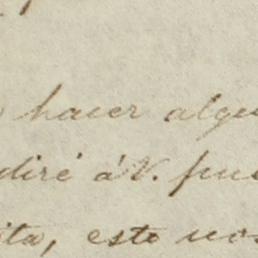 hacer algu
diré á V. pue
ita, esto nos